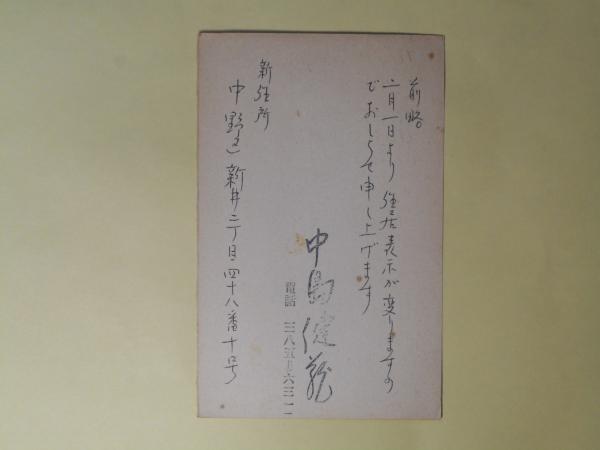 前略
二月一日より住居表示が変りますの
でおしらせ申し上げます
新住所
中野区新井二丁目四十八番十号
中島健蔵
電話 三八五局六三一一